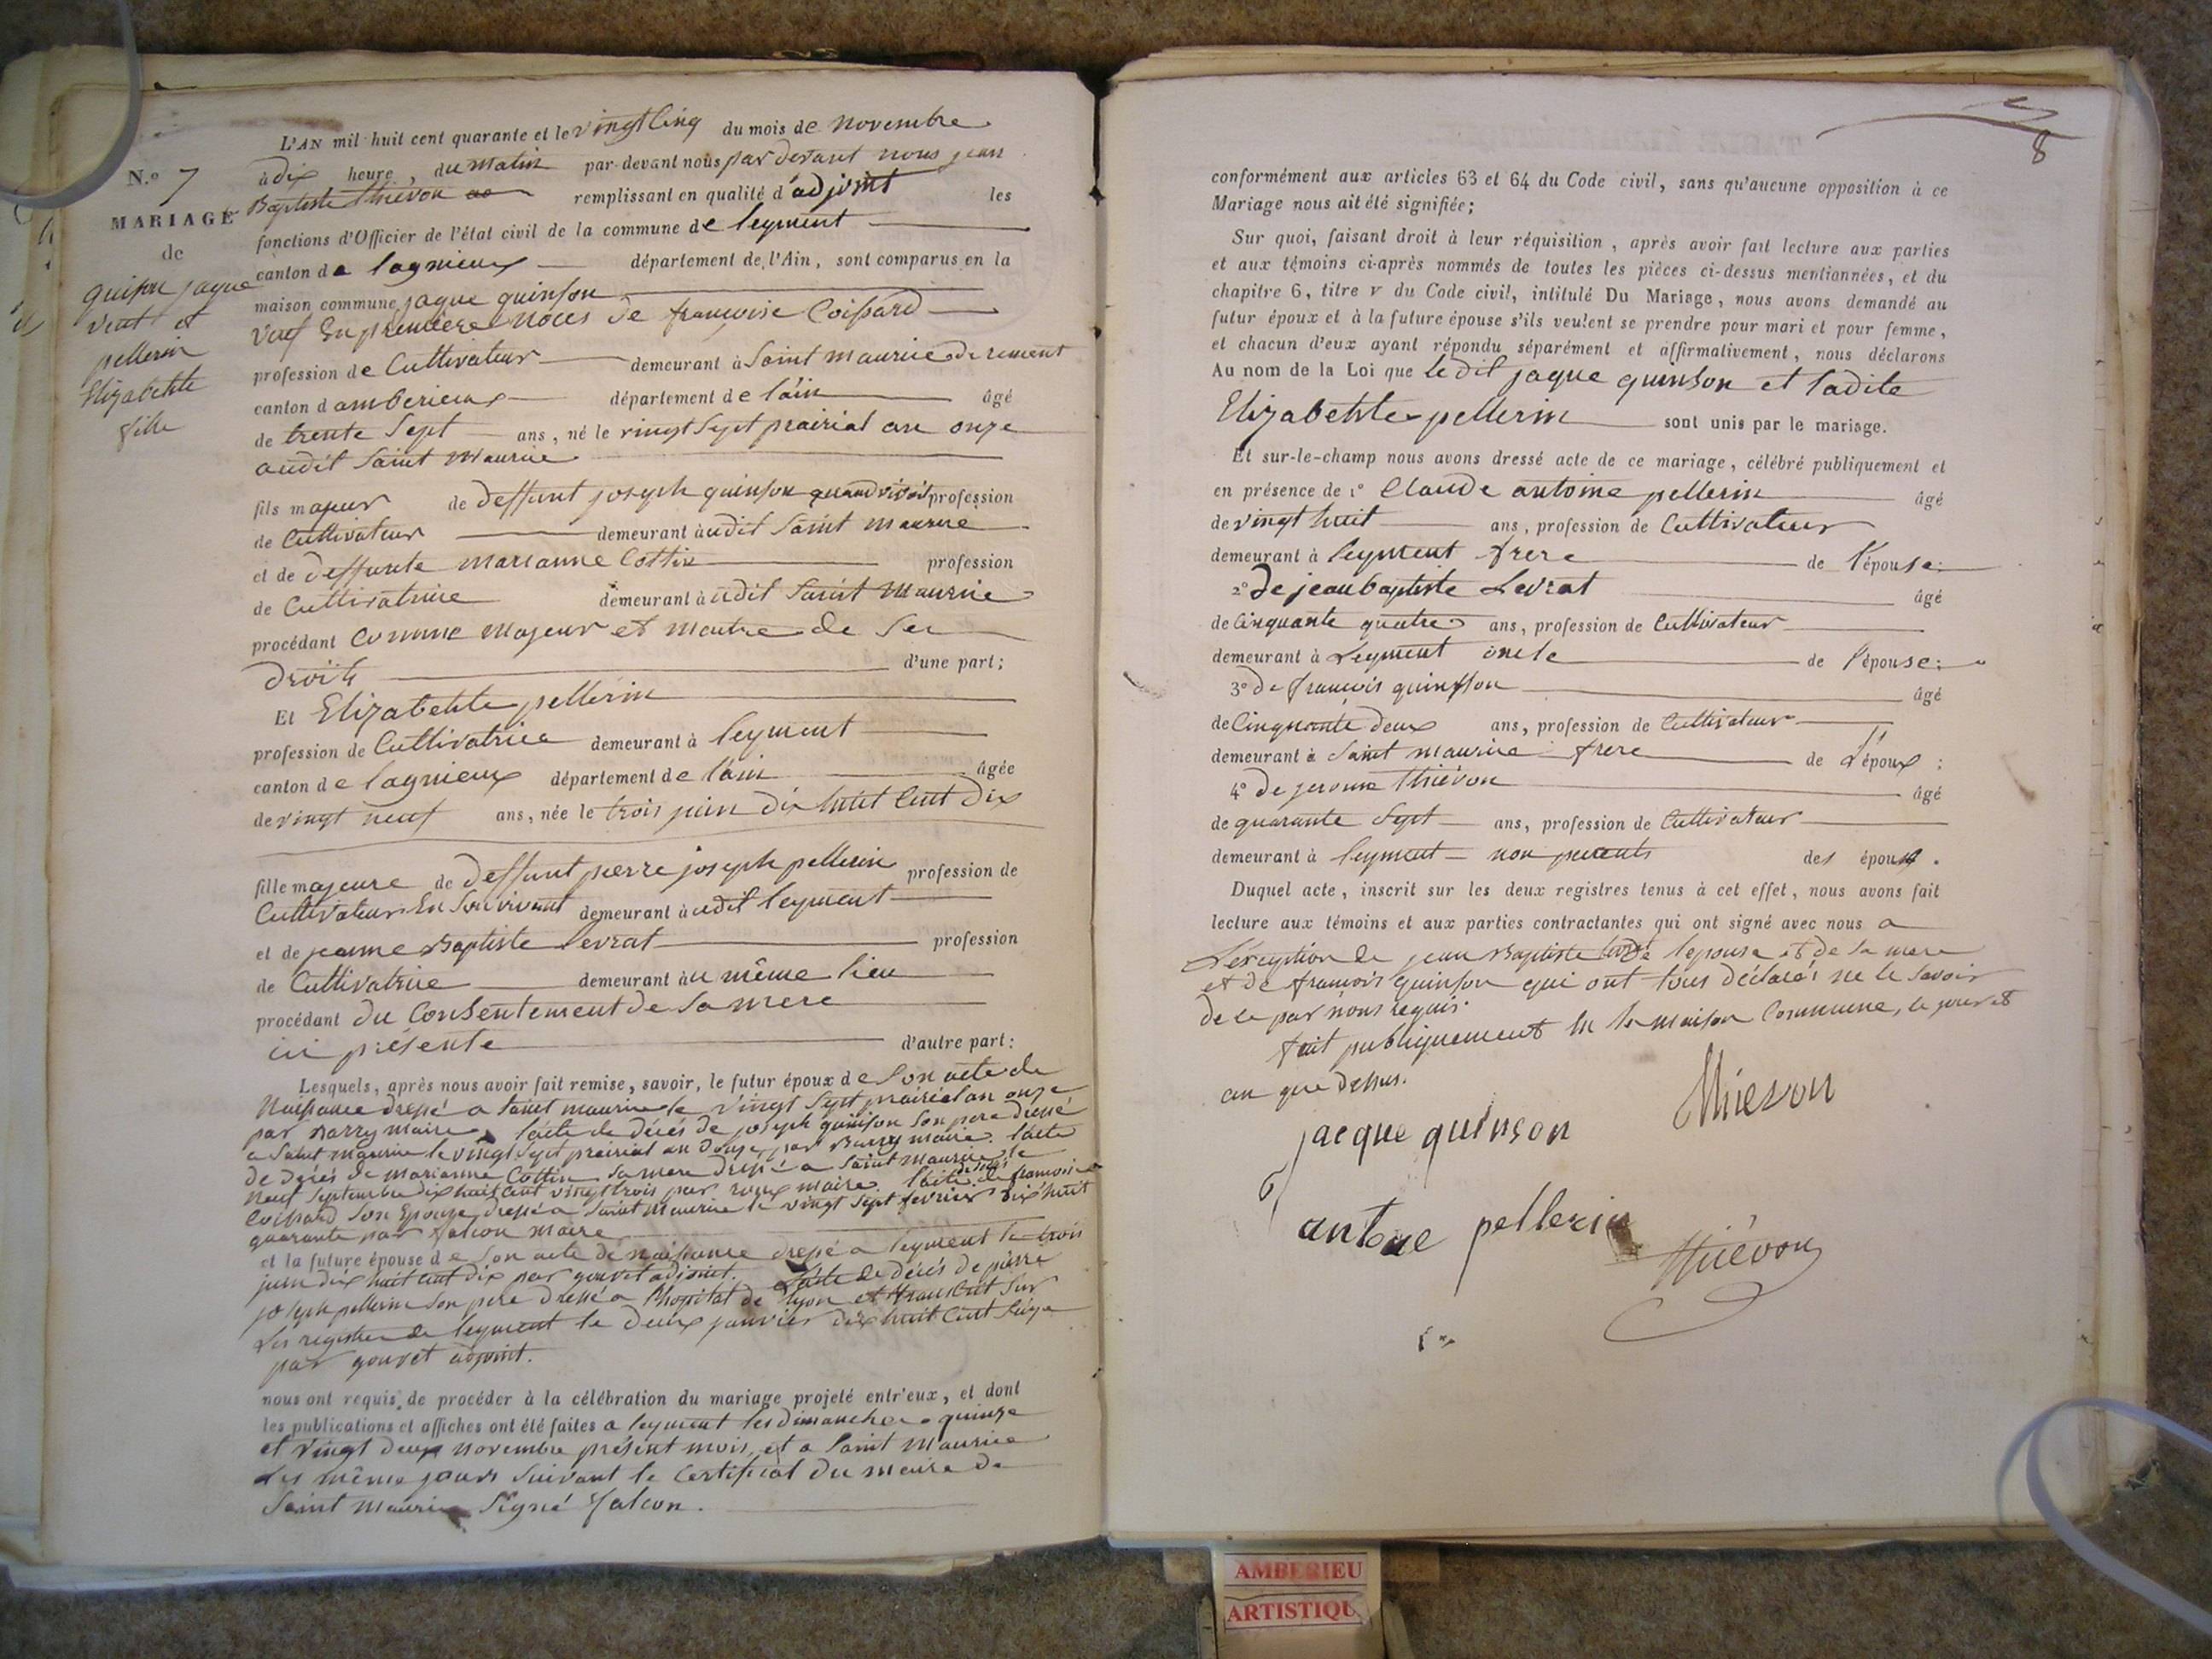 N.º 7
MARIAGE
de
quinson jaque
veuf et
pellerin
Elizabethte
fille
L'AN mil huit cent quarante et le vingt Cinq du mois de novembre
à dix heure, du matin par-devant nous par devant nous jean
Baptiste thiévon remplissant en qualité d'adjoint les
fonctions d'Officier de l'état civil de la commune de leyment
canton de lagnieux département de l'Ain, sont comparus en la
maison commune, jaque quinson
veuf En première noces de françoise Coissard
profession de Cultivateur demeurant à Saint maurice de rement
canton d'amberieux département de l'ain âgé
de trente Sept ans, né le vingt Sept prairial an onze
audit Saint Maurice
fils majeur de deffunt joseph quinson quand vivait profession
de Cultivateur demeurant àudit Saint maurice
et de deffunte marianne Cottin profession
de Cultivatrice demeurant àudit Saint Maurice
procédant Comme Majeur et maitre de Ses
droits d'une part;
Et Elizabethte pellerin
profession de Cultivatrice demeurant à leyment
canton de lagnieux département de l'ain âgée
de vingt neuf ans, née le trois juin dix huit Cent dix
fille majeure de deffunt pierre joseph pellerin profession de
Cultivateur En Son vivant demeurant àudit leyment
et de jeanne Baptiste levrat profession
de Cultivatrice demeurant àu même lieu
procédant du Consentement de Sa mere
ici présente d'autre part:
Lesquels, après nous avoir fait remise, savoir, le futur époux de Son acte de
Naissance dressé a Saint maurice le vingt Sept prairial an onze
par Barry maire, l'acte de décés de joseph quinson Son pere dressé
a Saint maurice le vingt Sept prairial an douze, par Barry maire. l'acte
de décés de marianne Cottin Sa mere dressé a Saint maurice le
neuf Septembre dix huit Cent vingt trois par roux maire. l'acte de décés de françoise
Coissard Son Epouze dressé a Saint Maurice le vingt Sept fevrier dix huit
quarante par falcon maire
et la future épouse de Son acte de naissance dressé a leyment le trois
juin dix huit cent dix par gouvet adjoint. L'acte de décés de pierre
joseph pellerin Son pere dressé a l'hopital de lyon et transcrit Sur
Les registres de leyment le deux janvier dix huit Cent Seize
par gouvet adjoint.
nous ont requis de procéder à la célébration du mariage projeté entr'eux, et dont
les publications et affiches ont été faites a leyment les dimanches quinze
et vingt deux novembre présent mois, et a Saint Maurice
Les même jours Suivant le Certificat du maire de
Saint Maurice Signé falcon.
8
conformément aux articles 63 et 64 du Code civil, sans qu'aucune opposition à ce
Mariage nous ait été signifiée;
Sur quoi, faisant droit à leur réquisition, après avoir fait lecture aux parties
et aux témoins ci-après nommés de toutes les pièces ci-dessus mentionnées, et du
chapitre 6, titre V du Code civil, intitulé Du Mariage, nous avons demandé au
futur époux et à la future épouse s'ils veulent se prendre pour mari et pour femme,
et chacun d'eux ayant répondu séparément et affirmativement, nous déclarons
Au nom de la Loi que Ledit jaque quinson et ladite
Elizabethte pellerin sont unis par le mariage.
Et sur-le-champ nous avons dressé acte de ce mariage, célébré publiquement et
en présence de 1º Claude antoine pellerin âgé
de vingt huit ans, profession de Cultivateur
demeurant à leyment frere de l'épouse:
2º de jean baptiste Levrat âgé
de Cinquante quatre ans, profession de Cultivateur
demeurant à Leyment oncle de l'épouse:
3º de francois quinsson âgé
de Cinquante deux ans, profession de Cultivateur
demeurant à Saint maurice frere de L'époux:
4º de jerome thiévon âgé
de quarante Sept ans, profession de Cultivateur
demeurant à leyment non parents des époux.
Duquel acte, inscrit sur les deux registres tenus à cet effet, nous avons fait
lecture aux témoins et aux parties contractantes qui ont signé avec nous a
L'exeption de jean Baptiste l'epouse et de Sa mere
et de francois quinson qui ont tous déclarés ne le Savoir
de ce par nous requis.
fait publiquement En la maison Commune, le jour et
an que dessus.
jacque quinson
Thievon
antoine pellerin
thiévon
AMBERIEU
ARTISTIQU